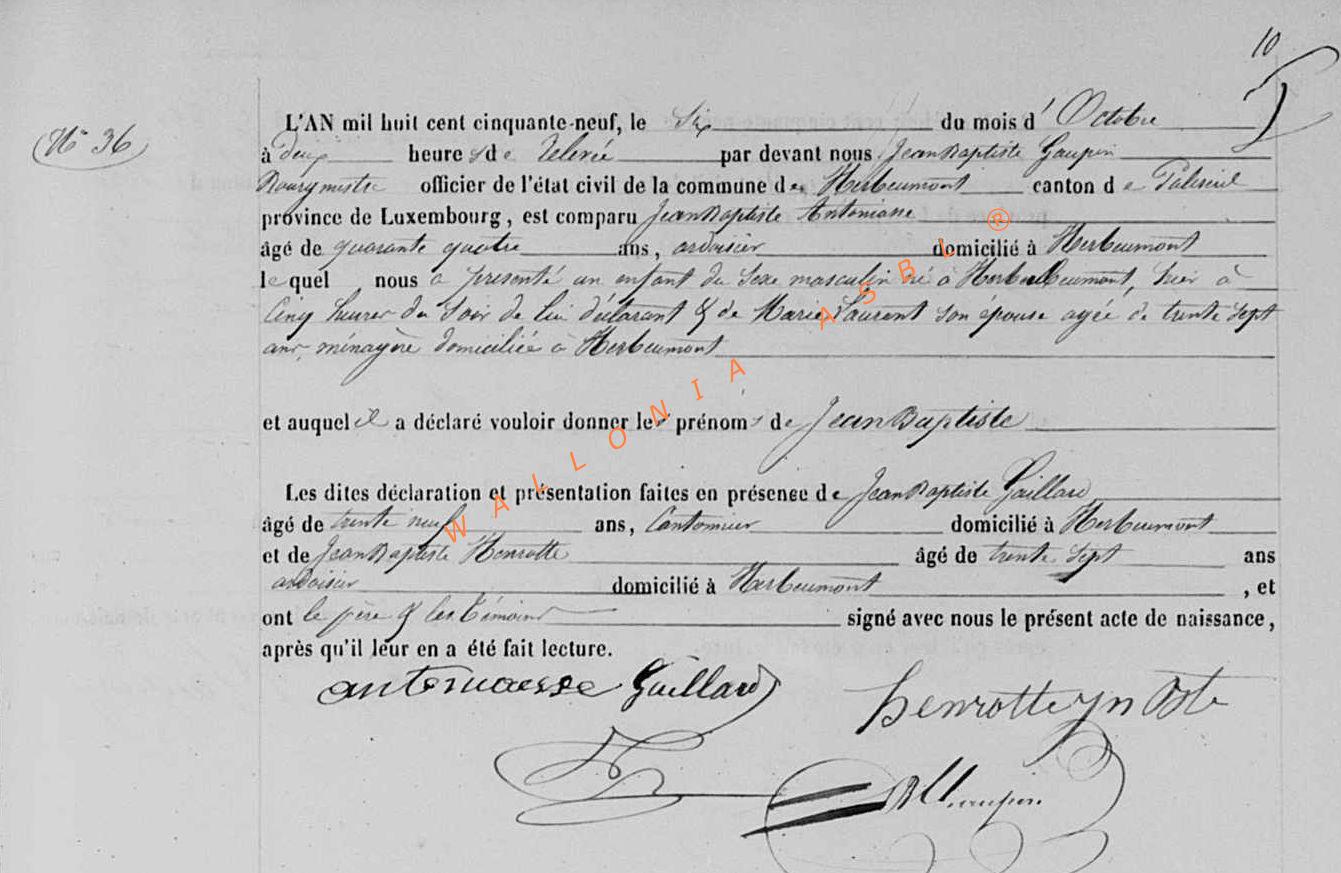 10
N° 36
L'AN mil huit cent cinquante-neuf, le Six du mois d' Octobre
à deux heures de relevée par devant nous Jean Baptiste Gaupin
Bourgmestre officier de l'état civil de la commune de Herbeumont canton de Paliseul
province de Luxembourg, est comparu Jean Baptiste Antoniasse
âgé de quarante quatre ans, ardoisier domicilié à Herbeumont
lequel nous a présenté un enfant du sexe masculin né à Herbeumont, hier à
Cinq heures du Soir de lui déclarant & de Marie Laurent son épouse agée de trente Sept
ans, ménagère domiciliée à Herbeumont
et auquel il a déclaré vouloir donner les prénoms de Jean Baptiste
Les dites déclaration et présentation faites en présence de Jean Baptiste Gaillard
âgé de trente neuf ans, Cantonnier domicilié à Herbeumont
et de Jean Baptiste Henrotte âgé de trente Sept ans
ardoisier domicilié à Herbeumont, et
ont le père & les témoins signé avec nous le présent acte de naissance,
après qu'il leur en a été fait lecture.
antoniasse Gaillard henrotte jn Bte
WALLONIA ASBL ®